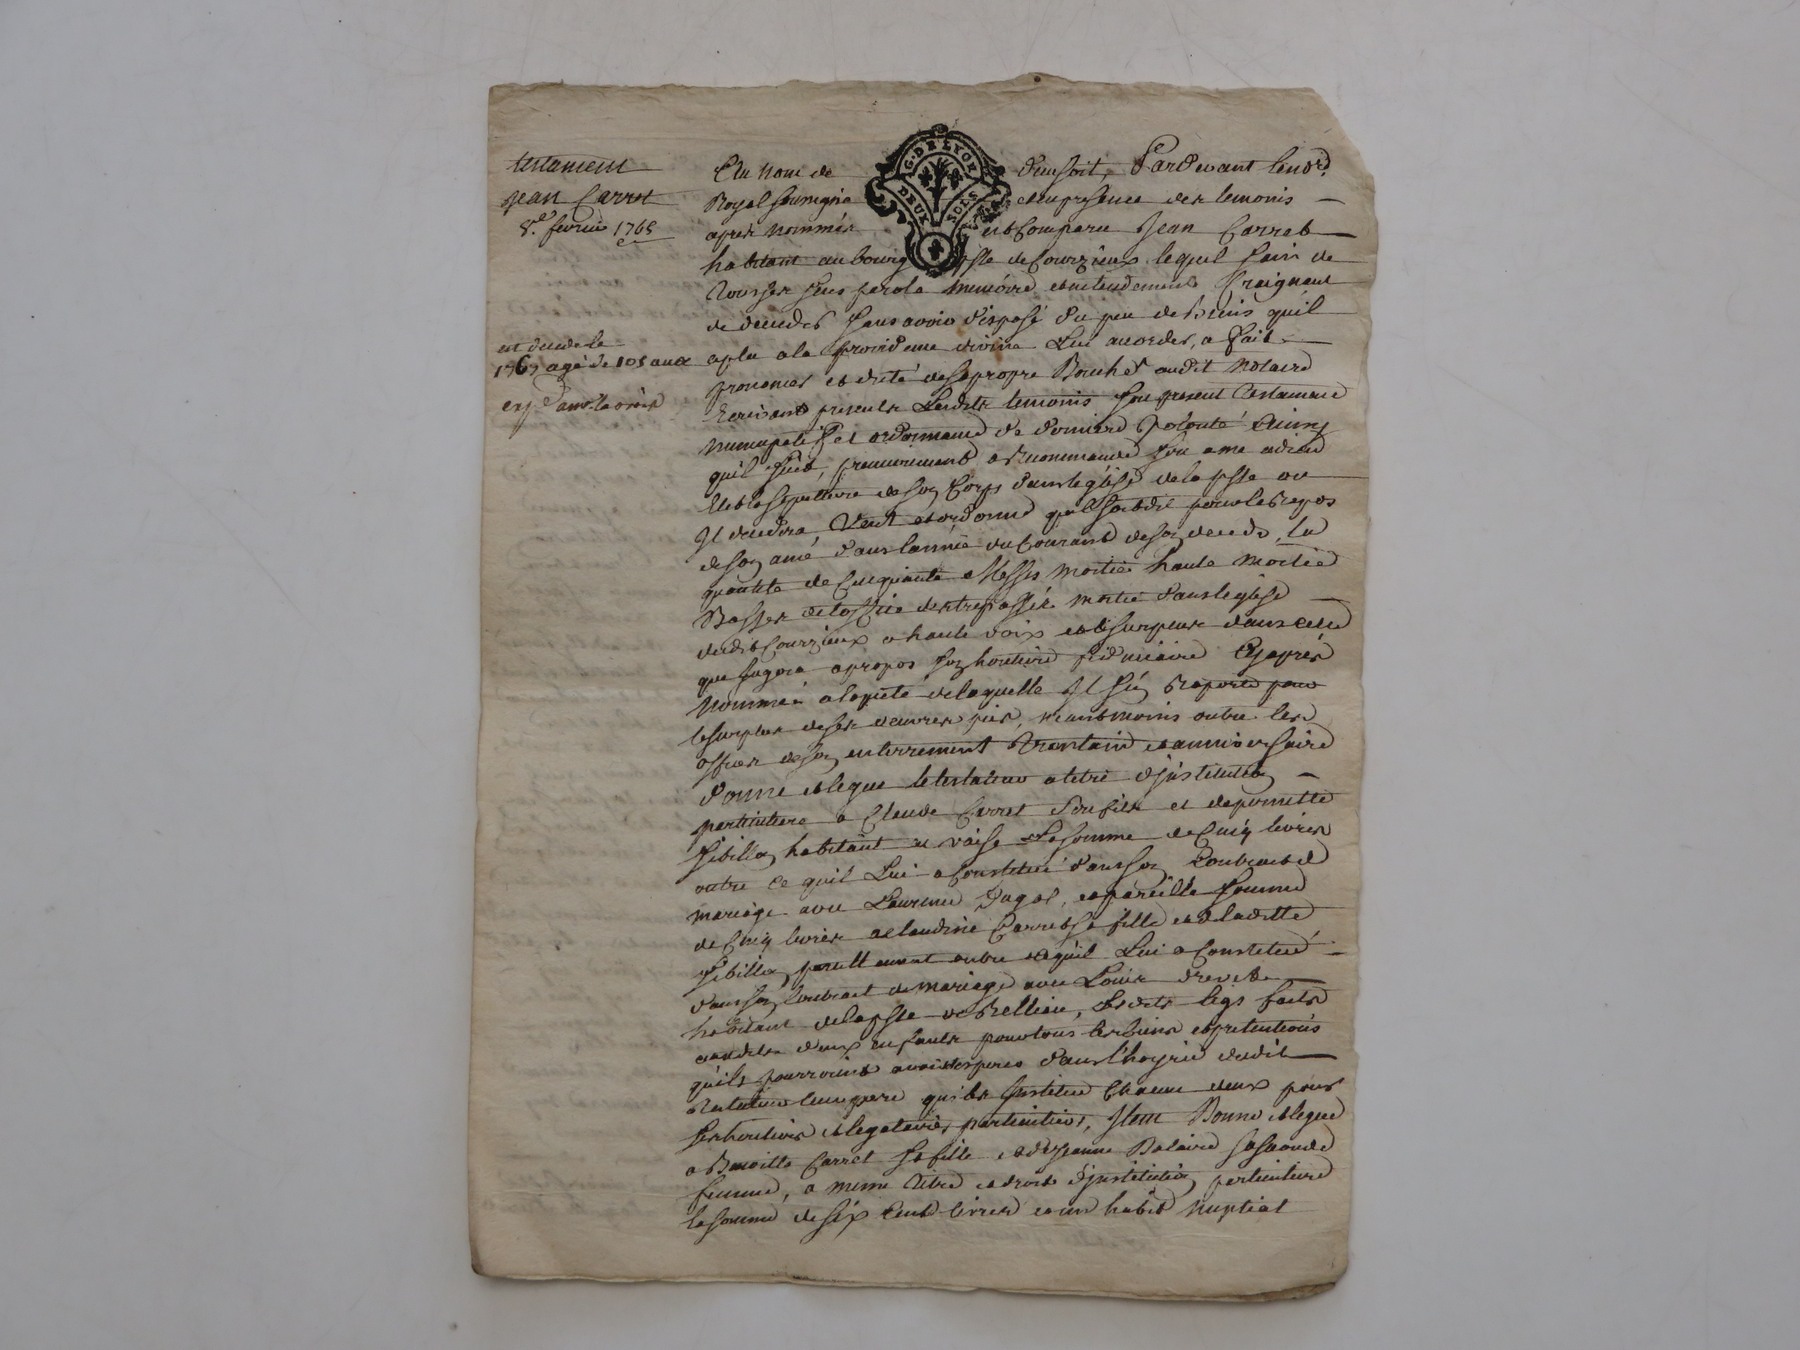 testament
Jean Carret
8e. fevrier 1768
est decedé le
1767 agé de 105 ans
G. DE LYON
DEUX SOLS
Au nom de Dieu soit, Pardevant le no.re
Royal soussigné et en presence des temoins
apres nommés est comparu Jean Carret
habitant au bourg psse de Courzieux lequel sain de
tous ses sens parole memoire et entendement craignant
de deceder sans avoir disposé du peu de biens quil
a plu a la providence divine Lui accorder, a fait
prononcé et dicté de sa propre Bouche audit Notaire
Ecrivant presents Lesdits temoins son present testament
nuncupatif et ordonnance de derniere volonté Ainsy
quil suit, premierement a Recommandé son ame a dieu
Elit la sepulture de son Corps dans leglise de la psse ou
Il decedera, Veut et ordonne quil soit dit pour le Repos
de son ame dans lannée du Courant de son deceds, la
quantité de Cinquante Messes moitié haute moitié
Basses de loffice des trepassés moitié dans leglise
dudit Courzieux a haute voix et le surplus dans celle
que jugera a propos son heritiere fiduciaire Cy apres
Nommée a la pieté de laquelle Il s'en Raporte pour
le surplus de ses oeuvres pies, neantmoins outre les
offices de son enterrement trentain et anniversaire
donne et legue le testateur a titre d'institution
particuliere a Claude Carret son fils et de pernette
Sibilla, habitant a vaise La somme de Cinq livres
outre ce quil Lui a Constitué dans son Contract de
mariage avec Laurence Dagot, et pareille somme
de Cinq livres a Claudine Carret sa fille et de ladite
Sibilla, pareillement outre ce quil Lui a Constitué
dans son Contract de mariage avec Louis
habitant de la psse de Bessenay, Lesdits legs faits
auxdits deux enfants pour tous les biens et pretentions
quils pourroient avoir et esperer dans l'hoyrie dudit
testateur leur pere quil les institue Chacun deux pour
ses heritiers et legataires particuliers, Item Donne et legue
a Benoitte Carret sa fille et de Jeanne Balaire sa seconde
femme, a meme titre et droit d'institution particuliere
la somme de six cent livres et un habit Nuptial